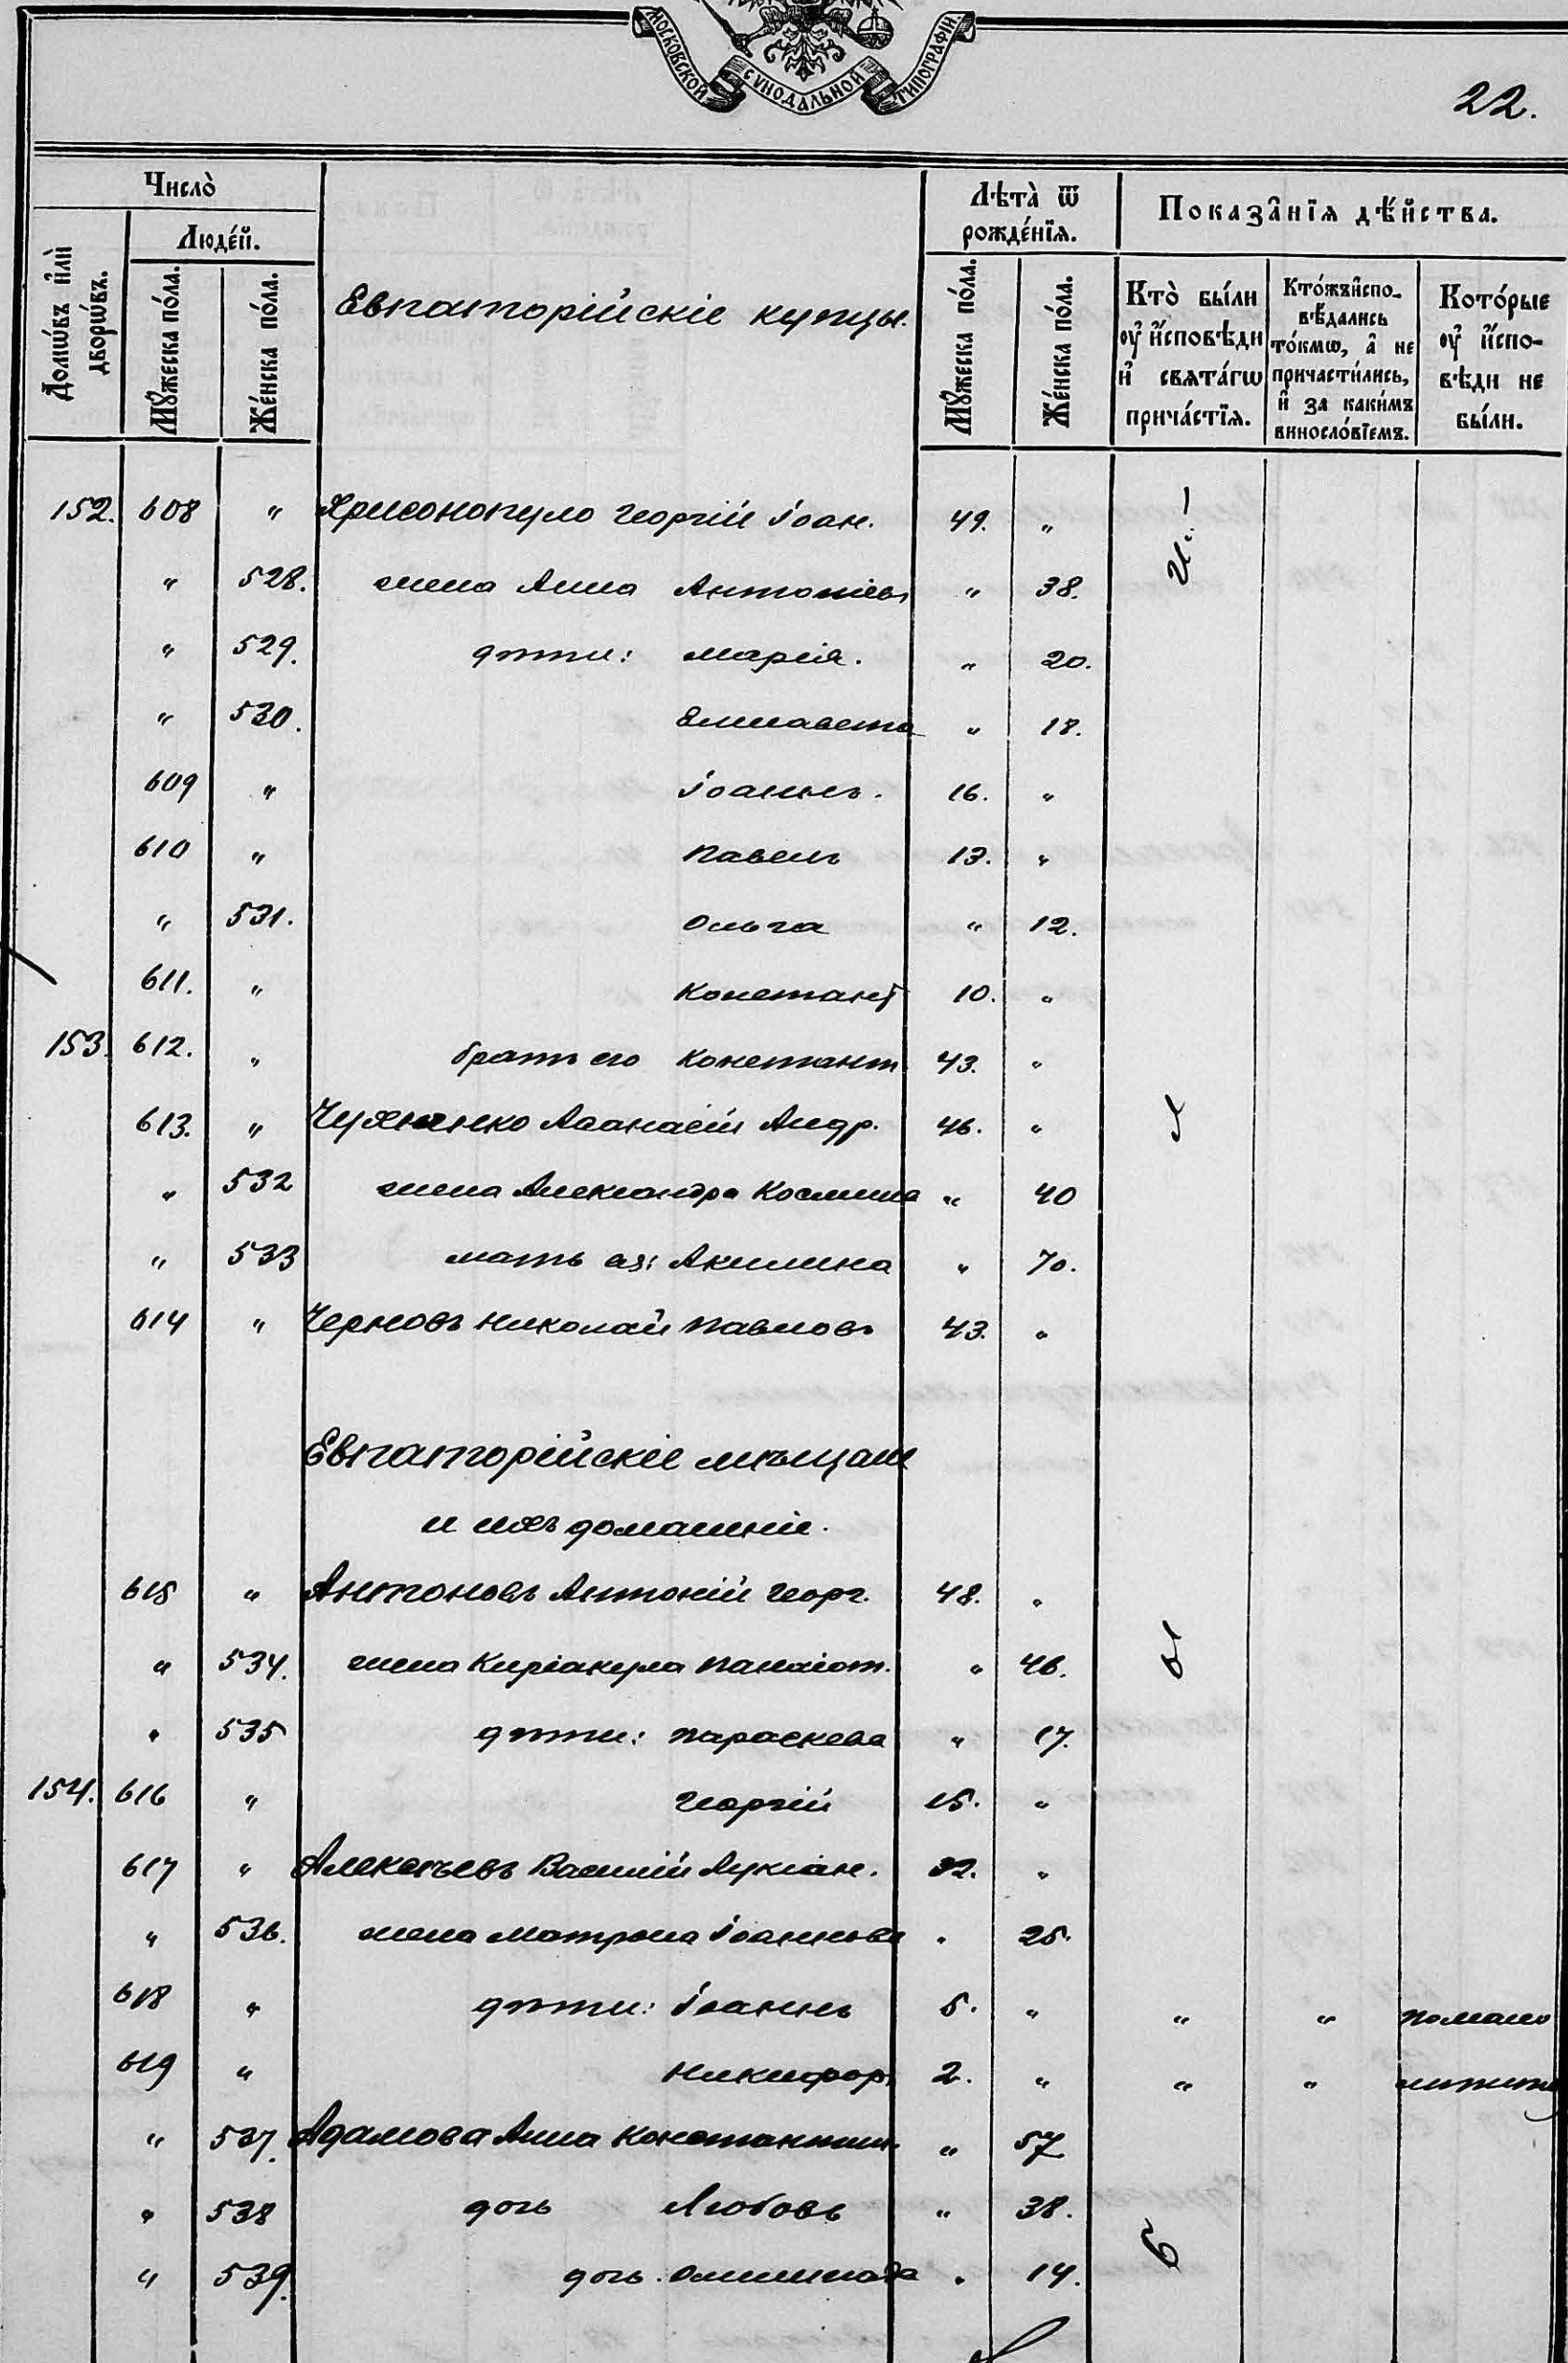 МОСКОВСКОЙ СѴНОДАЛЬНОЙ ТИПОГРАФІИ
22.
Число̀
Домѡ́въ и҆лѝ дворѡ́въ.
Люде́й.
Мꙋ́жеска по́ла.
Же́нска по́ла.
Евпаторійскіе купцы.
Лѣта̀ ѿ рожде́нїѧ.
Мꙋ́жеска по́ла.
Же́нска по́ла.
Показа̑нїѧ дѣ́йства.
Кто̀ бы́ли ᲂу҆ и҆́сповѣди и҆ свѧта́гѡ прича́стїѧ.
Кто́жъ и҆сповѣ́дались то́кмѡ, а҆ не причасти́лись, и҆ за каки́мъ виносло́вїемъ.
Кото́рые ᲂу҆ и҆́сповѣди не бы́ли.
152. 608 " Хрисонопуло Георгій Іоан. 49. "
" 528. жена Анна Антоніев " 38.
" 529. дѣти: Марія. " 20.
" 530. Елисавета " 18.
609 " Іоаннъ. 16. "
610 " Павелъ 13. "
" 531. Ольга " 12.
611. " Констант 10. "
153. 612. " братъ его Констант 43. "
613. " Афанасій Андр. 46. "
" 532 жена Александра Космина " 40
" 533 мать Акилина " 70.
614 " Черновъ Николай Павловъ 43. "
Евпаторійскіе мѣщане
и ихъ домашніе.
615 " Антоновъ Антоній Георг. 48. "
" 534. жена Киріакула Панаіот. " 46.
" 535 дѣти: Параскева " 17.
154. 616 " Георгій 15. "
617 " Алексѣевъ Василій Лукіан. 32. "
" 536. жена Матрона Іоаннова " 25.
618 " дѣти: Іоаннъ 5. " " " по мало
619 " Никифор 2. " " " лѣтству
" 537. Адамова Анна Константин. " 57
" 538 дочь Любовь " 38.
" 539. дочь Олимпиада " 14.